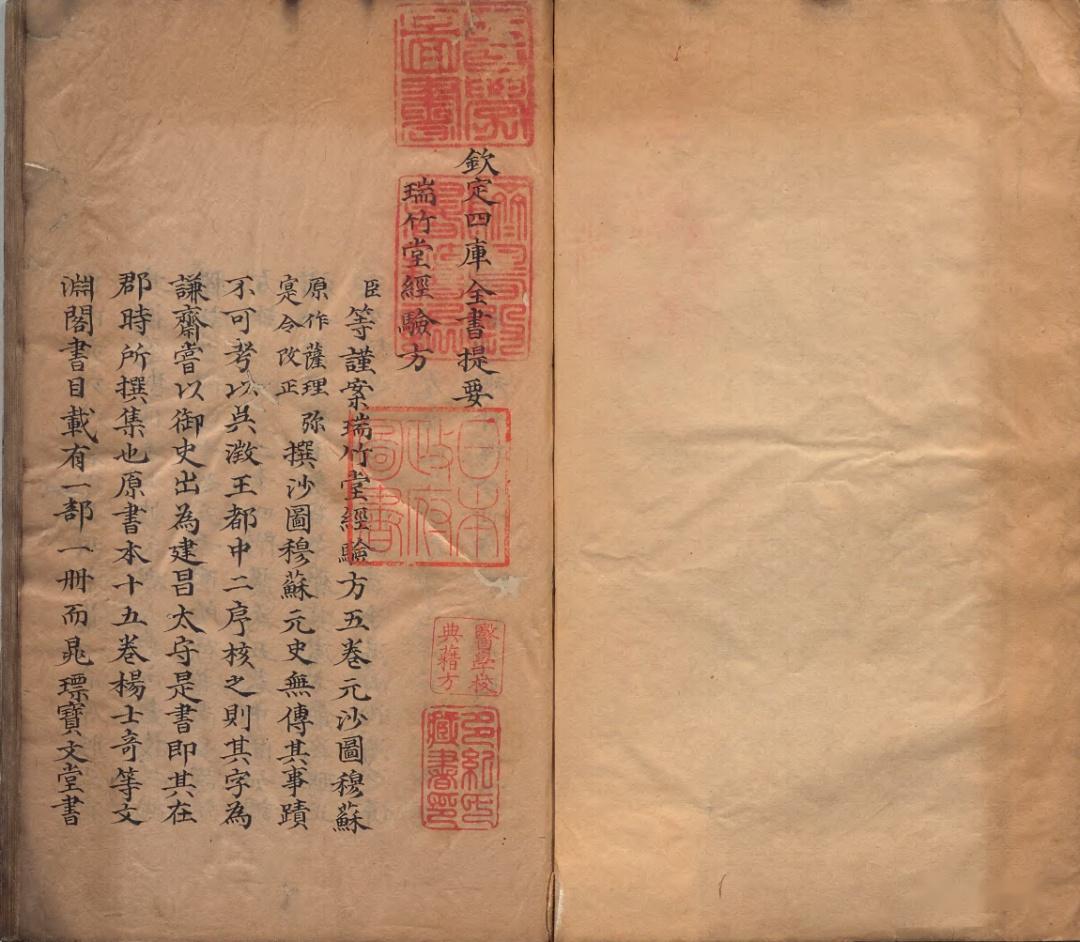 欽定四庫全書提要
瑞竹堂經驗方
臣等謹案瑞竹堂經驗方五卷元沙圖穆蘇
原作薩理彌
寔今改正
撰沙圖穆蘇元史無傳其事蹟
不可考以吳澂王都中二序核之則其字為
謙齋嘗以御史出為建昌太守是書即其在
郡時所撰集也原書本十五卷楊士奇等文
淵閣書目載有一部一冊而晁瑮寶文堂書
醫學圖書
日本政府圖書
醫學校
典籍方
藏書印